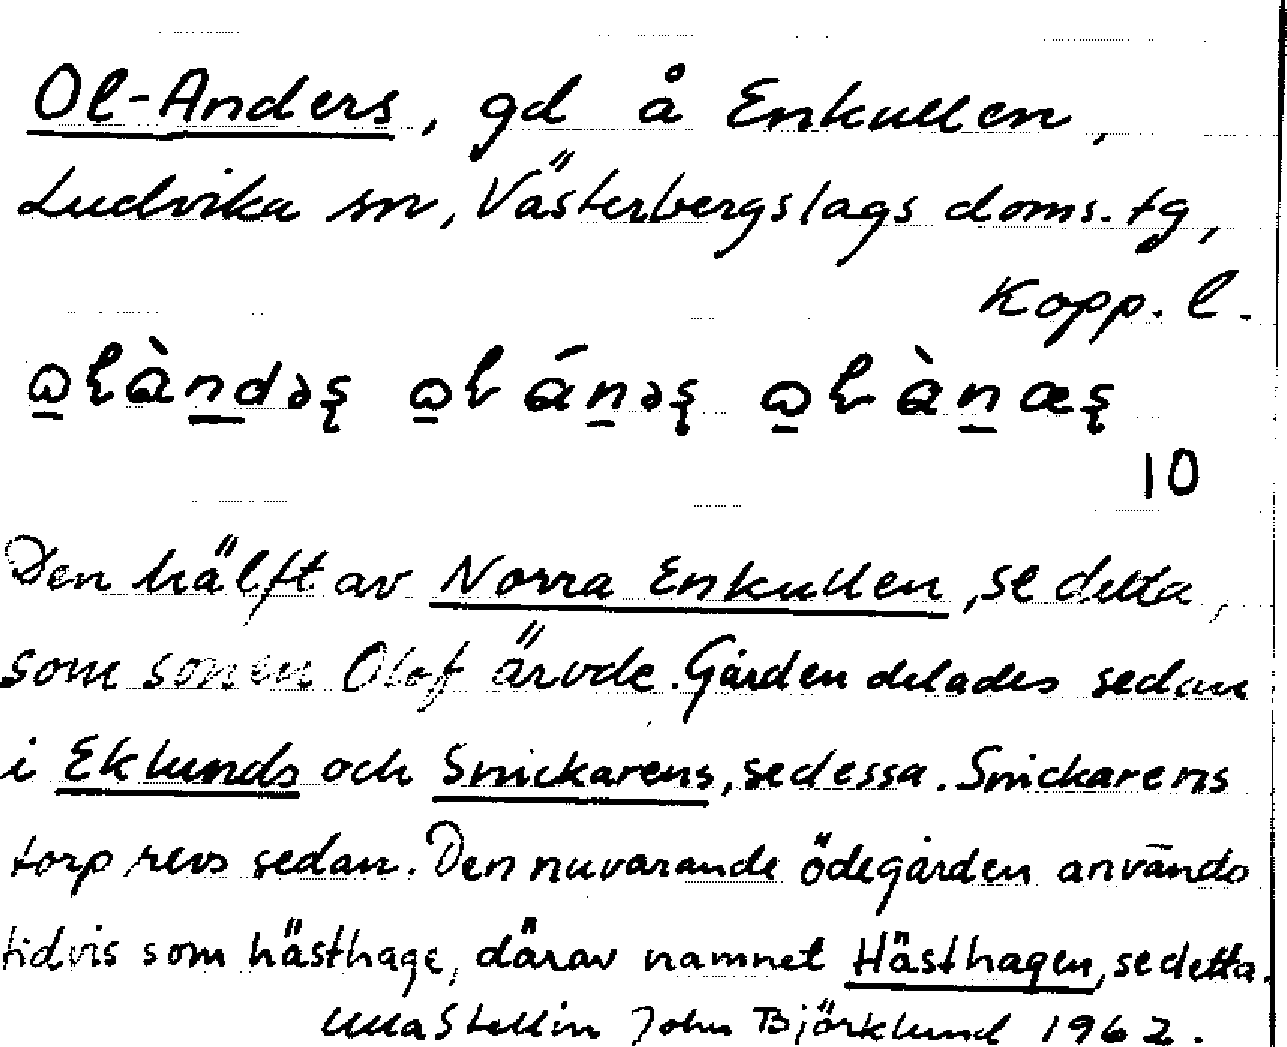 Ol-Anders, gd å Enkullen,
Ludvika sn, Västerbergslags doms. tg,
Kopp. l.
10
Den hälft av Norra Enkullen, se detta,
som sonen Olof ärvde. Gården delades sedan
i Eklunds och Smickarens, se dessa. Smickarens
torp revs sedan. Den nuvarande ödegården används
tidvis som hästhage, därav namnet Hästhagen, se detta.
Ulla Stellin John Björklund 1962.